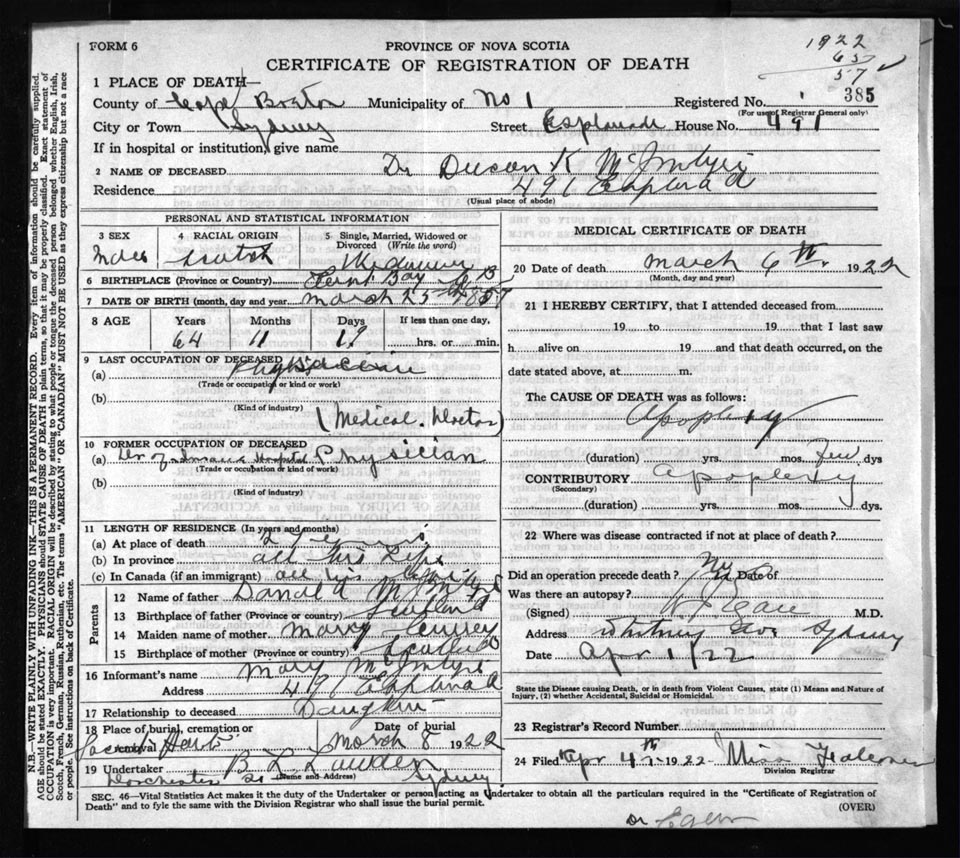 FORM 6
PROVINCE OF NOVA SCOTIA
CERTIFICATE OF REGISTRATION OF DEATH
1922
65
57
1 PLACE OF DEATH—
County of Cape Breton Municipality of No 1 Registered No. 385
(For use of Registrar General only)
City or Town Sydney Street Esplanade House No. 491
If in hospital or institution, give name
2 NAME OF DECEASED Dr K McIntyre
Residence 491
(Usual place of abode)
PERSONAL AND STATISTICAL INFORMATION
3 SEX
4 RACIAL ORIGIN Scotch
5 Single, Married, Widowed or Divorced (Write the word) Widower
6 BIRTHPLACE (Province or Country) Bay C B
7 DATE OF BIRTH (month, day and year) March 25 1857
8 AGE Years Months Days If less than one day,
64 11 hrs. or min.
9 LAST OCCUPATION OF DECEASED
(a) Physician
(Trade or occupation or kind or work)
(b)
(Kind of industry)
(Medical Doctor)
10 FORMER OCCUPATION OF DECEASED
(a) Hospital Physician
(Trade or occupation or kind or work)
(b)
(Kind of industry)
11 LENGTH OF RESIDENCE (In years and months)
(a) At place of death
(b) In province all his life
(c) In Canada (if an immigrant) all his life
Parents
12 Name of father Donald
13 Birthplace of father (Province or country) Scotland
14 Maiden name of mother Mary
15 Birthplace of mother (Province or country)
16 Informant's name Mary McIntyre
Address 491
17 Relationship to deceased Daughter
18 Place of burial, cremation or removal Date of burial
March 8 1922
19 Undertaker
(Name and Address)
Dorchester St Sydney
MEDICAL CERTIFICATE OF DEATH
20 Date of death March 6th 1922
(Month, day and year)
21 I HEREBY CERTIFY, that I attended deceased from
19 to 19 that I last saw
h alive on 19 and that death occurred, on the
date stated above, at m.
The CAUSE OF DEATH was as follows:
Apoplexy
(duration) yrs. mos. Few dys
CONTRIBUTORY Apoplexy
(Secondary)
(duration) yrs. mos. dys.
22 Where was disease contracted if not at place of death?
Did an operation precede death? No Date of
Was there an autopsy?
(Signed) M.D.
Address Whitney Ave Sydney
Date Apr 1/22
State the Disease causing Death, or in death from Violent Causes, state (1) Means and Nature of Injury, (2) whether Accidental, Suicidal or Homicidal.
23 Registrar's Record Number
24 Filed Apr 4th 1922 Miss
Division Registrar
SEC. 46—Vital Statistics Act makes it the duty of the Undertaker or person acting as Undertaker to obtain all the particulars required in the "Certificate of Registration of
Death" and to fyle the same with the Division Registrar who shall issue the burial permit.
(OVER)
or
N.B.—WRITE PLAINLY WITH UNFADING INK—THIS IS A PERMANENT RECORD. Every item of information should be carefully supplied.
AGE should be stated EXACTLY. PHYSICIANS should STATE CAUSE OF DEATH in plain terms, so that it may be properly classified. Exact statement of
OCCUPATION is very important. RACIAL ORIGIN will be described by stating to what people or tongue the deceased person belonged whether English, Irish,
Scotch, French, German, Russian, Ruthenian, etc. The terms "AMERICAN" or "CANADIAN" MUST NOT BE USED as they express citizenship but not a race
or people. See instructions on back of Certificate.